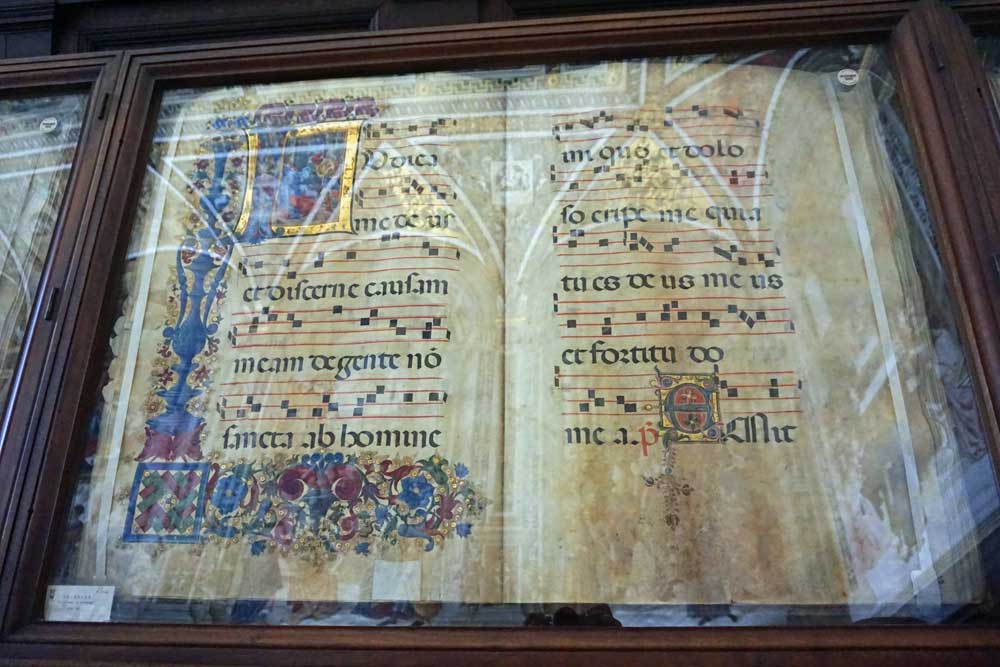 IVdica
me de us
et discerne causam
meam de gente nō
sancta ab homine
ini quo et dolo
so eripe me quia
tu es de us me us
et fortitu do
me a. p̄ EMit